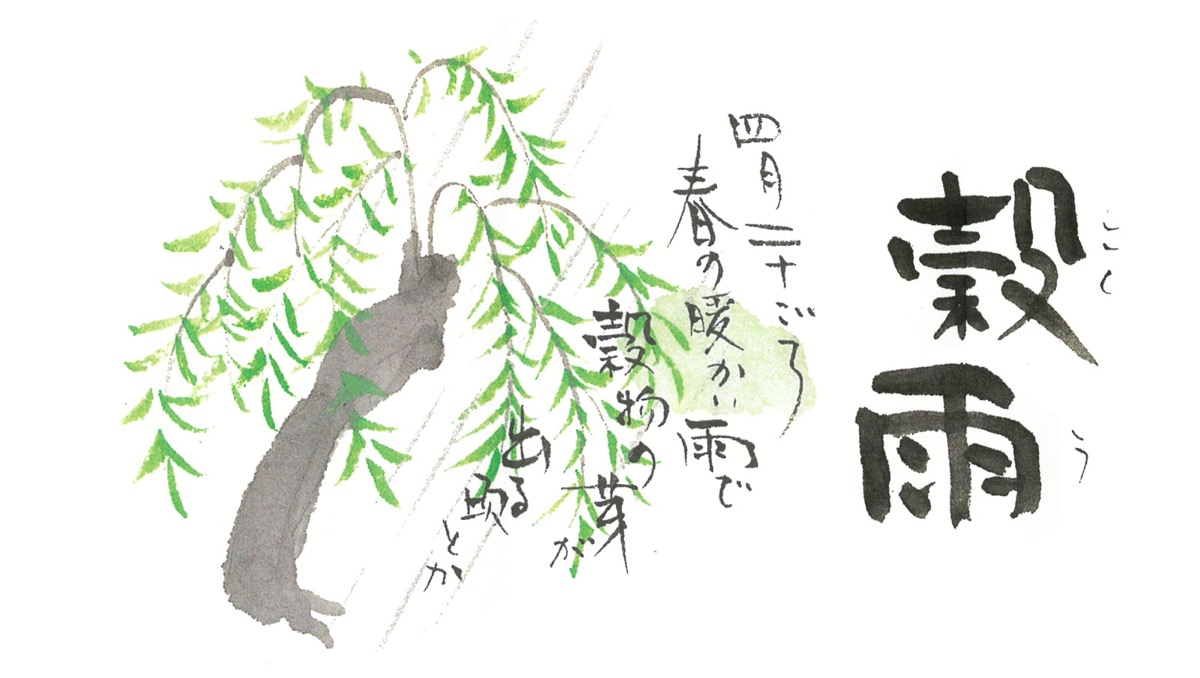 穀雨
こくう
四月二十ごろ
春の暖かい雨で
穀物の芽が
出る頃とか